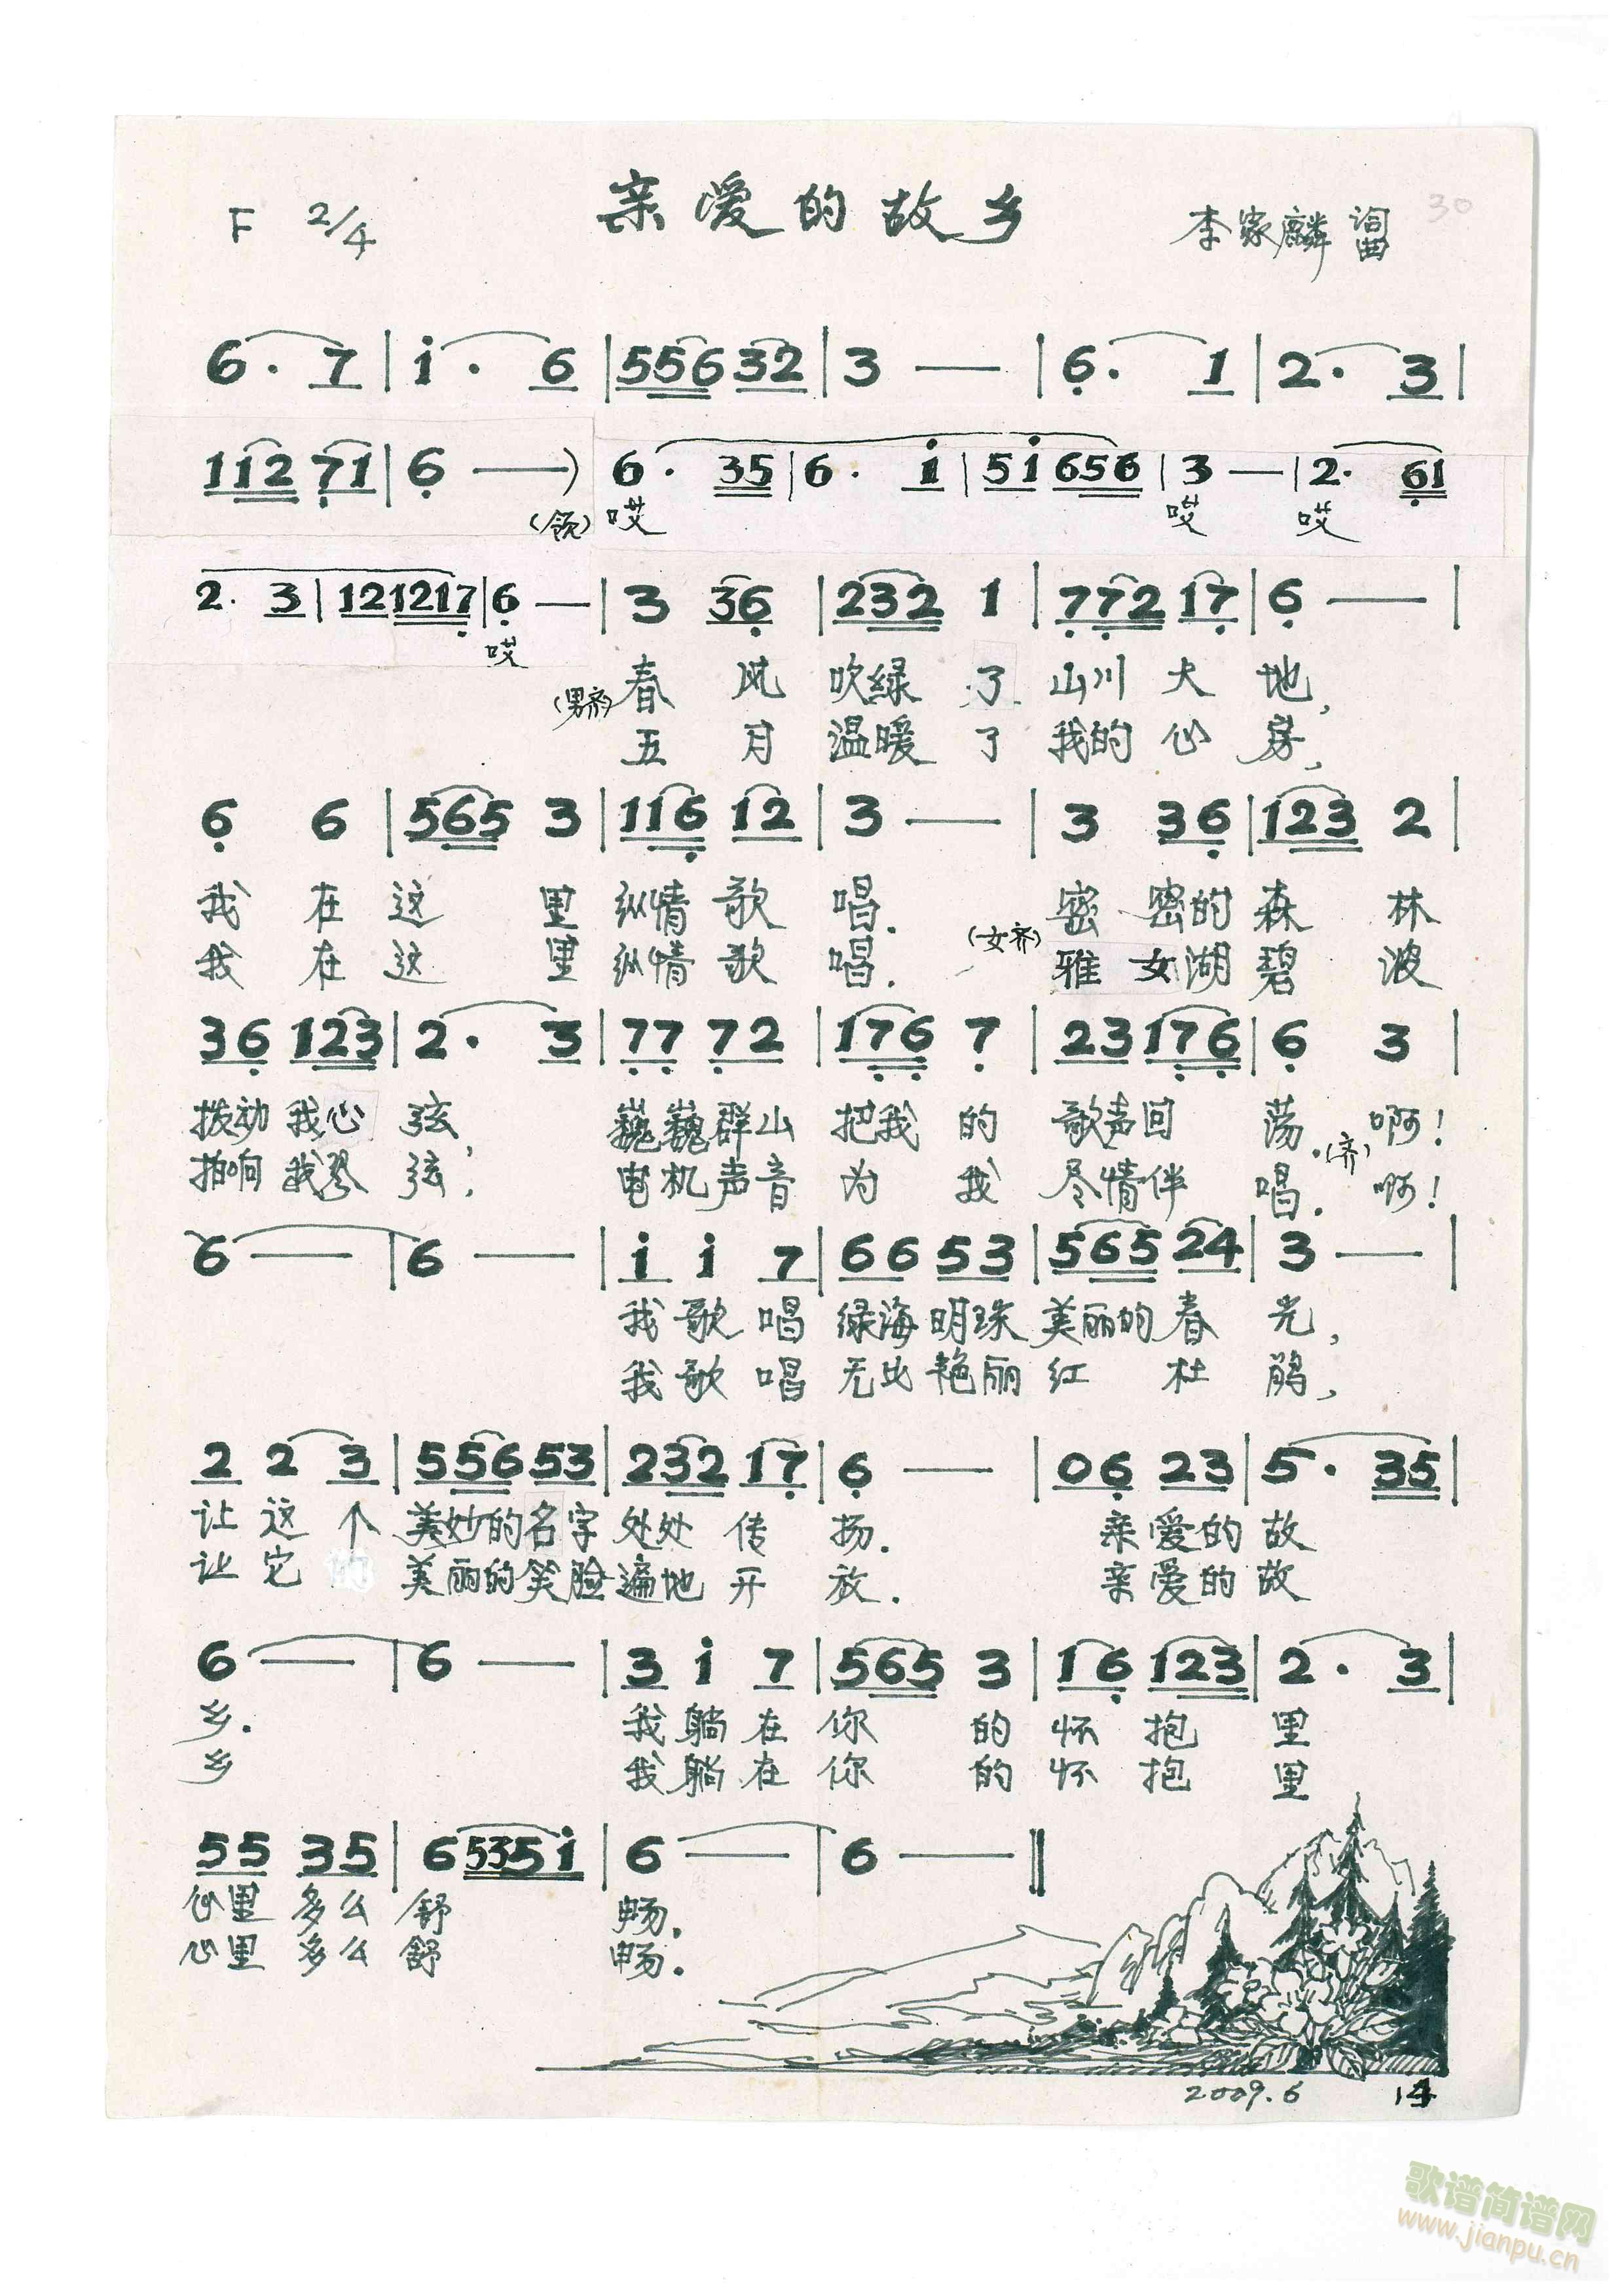 亲爱的故乡
F 2/4
李家麟 词曲
30
6· 7 | i· 6 | 556 32 | 3 — | 6· 1 | 2· 3 |
112 71 | 6 — ) 6· 35 | 6· i | 5i 656 | 3 — | 2· 61
(领) 哎 哎 哎
2· 3 | 12 1217 | 6 — | 3 36 | 232 1 | 772 17 | 6 — |
哎
(男齐) 春 风 吹绿 了 山川 大 地,
五 月 温暖 了 我的 心 房,
6 6 | 565 3 | 116 12 | 3 — | 3 36 | 123 2 |
我 在 这 里 纵情 歌 唱. 密 密的 森 林
我 在 这 里 纵情 歌 唱. (女齐) 雅 女湖 碧 波
36 123 | 2· 3 | 77 72 | 176 7 | 23 176 | 6 3 |
拨动 我心 弦, 巍巍群山 把我 的 歌声回 荡. (齐) 啊!
拍响 我琴 弦, 电机声音 为 我 尽情伴 唱. 啊!
6 — | 6 — | i i 7 | 66 53 | 565 24 | 3 — |
我 歌 唱 绿海 明珠 美丽的 春 光,
我 歌 唱 无比 艳丽 红 杜 鹃,
2 2 3 | 556 53 | 232 17 | 6 — | 06 23 | 5· 35 |
让 这 个 美妙的 名字 处处 传 扬. 亲 爱的 故
让 它 的 美丽的 笑脸 遍地 开 放. 亲 爱的 故
6 — | 6 — | 3 i 7 | 565 3 | 16 123 | 2· 3 |
乡. 我 躺 在 你 的 怀 抱 里
乡 我 躺 在 你 的 怀 抱 里
55 35 | 6 535i | 6 — | 6 — ‖
心里 多么 舒 畅.
心里 多么 舒 畅.
2009.6 14
歌谱简谱网
www.jianpu.cn